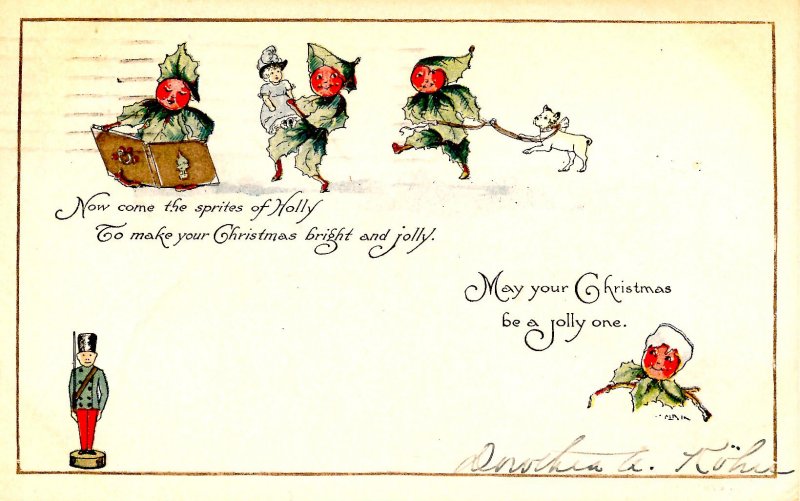 Now come the sprites of Holly
To make your Christmas bright and jolly.
May your Christmas
be a jolly one.
Dorothea A.